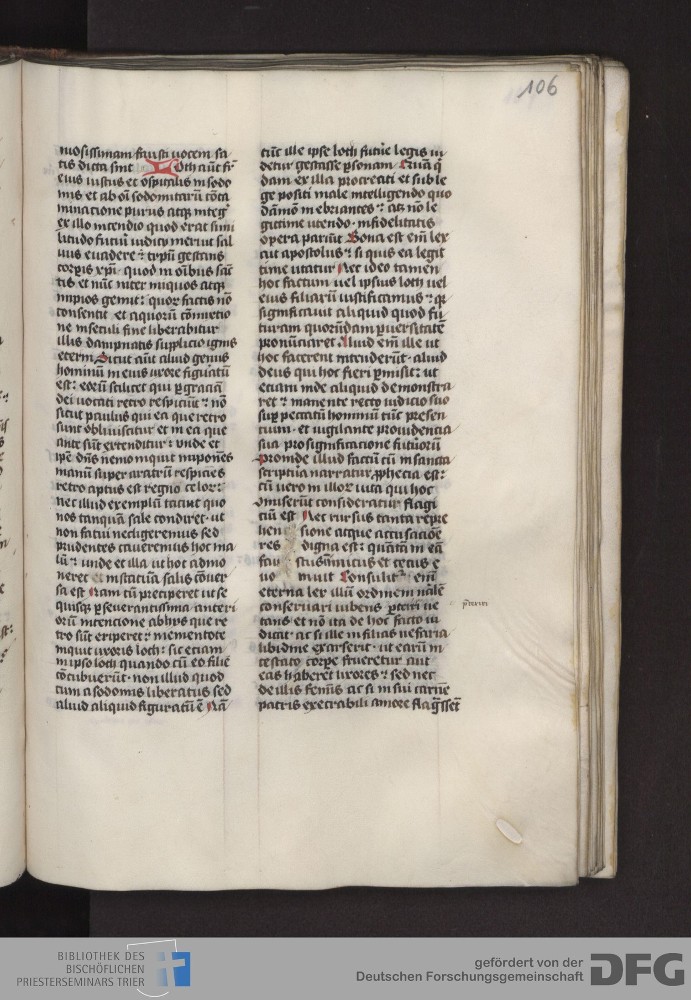 106
niosissimam fausti uocem sa
tis dicta sint Loth aūt fr̄
eius iustus et ospitalis in sodo
mis et ab oī sodomitarū cōta
minacione purus atq; integ̃
ex illo incendio quod erat simi
litudo futuri iudicij meruit sal
uus euadere ⁊ typū gestans
corꝑis xp̄i quod in oībus sāc
tis et nūc inter iniquos atq;
impios gemit: quor̄ factis nō
consentit et a quorū cōmixtio
ne in seculi fine liberabitur
illis dampnatis supplicio ignis
eterni Sicut aūt aliud genus
hominū in eius uxore figuratū
est: eorū scilicet qui ꝑ graciā
dei uocati retro respiciūt ⁊ nō
sicut paulus qui ea que retro
sunt obliuiscitur et in ea que
ante sūt extenditur: unde et
ip̄e dn̄s nemo inquit inponēs
manū super aratrū respiciēs
retro aptus est regno celor̄:
nec illud exemplū tacuit quo
nos tanquā sale condiret ut
non fatui necligeremus sed
prudentes caueremus hoc ma
lū: unde et illa ut hoc admo
neret in statuā salis cōuer
sa est Nam cū preciperet ut se
quisq; ꝑseuerantissima anteri
orū intencione ab hijs que re
tro sūt eriperet: mementote
inquit uxoris loth: sic etiam
in ipso loth quando cū eo filie
cōcubuerūt non illud quod
tum a sodomis liberatus sed
aliud aliquid figuratū ē Nā
tūc ille ipse loth future legis ui
detur gestasse ꝑsonam Quā q̄
dam ex illa procreati et sub le
ge positi male intelligendo quo
dāmō inebriantes ⁊ ea nō le
gitime utendo infidelitatis
opera pariūt Bona est em̄ lex
ait apostolus: si quis ea legit
time utatur Nec ideo tamen
hoc factum uel ipsius loth uel
eius filiarū iustificamus: q̄
significauit aliquid quod fu
turam quorūdam ꝑuersitatē
pronūciaret Aliud em̄ ille ut
hoc facerent intenderūt aliud
deus qui hoc fieri ꝑmisit: ut
etiam inde aliquid demonstra
ret: manente recto iudicio suo
suꝑ peccatū hominū tūc presen
tium et uigilante prouidencia
sua pro significacione futurorū
Proinde illud factū cū in sancta
scriptura narratur, ꝓphecia est:
cū uero in illor̄ uita qui hoc
cōmiserūt consideratur flagi
ciū est Nec rursus tanta repre
hensione atque accusacione
res digna est: quātā in eā
faustus inimicus et cecus e
uomuit Consulitr̄ em̄
eterna lex illū ordinem nālē
conseruari iubens ꝑterri ue
tans et nō ita de hoc facto iu
dicat ac si ille in filias nefaria
libidine exarserit ut earū in
cestato corꝑe frueretur aut
eas haberet uxores: sed nec
de illis feminīs ac si in sui carnē
patris execrabili amore flag̃ssēt
BIBLIOTHEK DES
BISCHÖFLICHEN
PRIESTERSEMINARS TRIER
gefördert von der
Deutschen Forschungsgemeinschaft
DFG